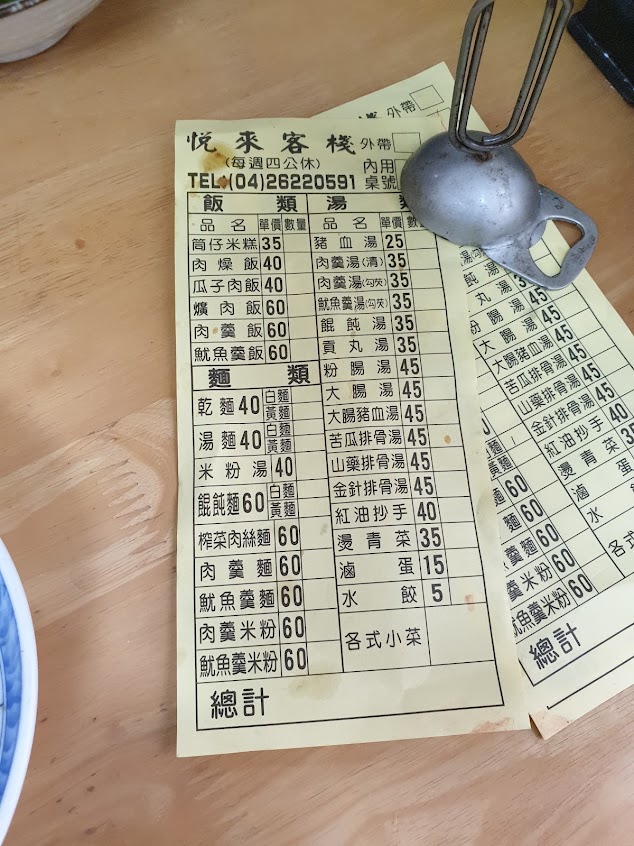 悅來客棧 外帶
(每週四公休) 內用
TEL:(04)26220591 桌號
飯類 湯
品名 單價 數量 品名 單價 數
筒仔米糕 35 豬血湯 25
肉燥飯 40 肉羹湯(清) 35
瓜子肉飯 40 肉羹湯(勾芡) 35
爌肉飯 60 魷魚羹湯(勾芡) 35
肉羹飯 60 餛飩湯 35
魷魚羹飯 60 貢丸湯 35
麵類 粉腸湯 45
乾麵 40 白麵 黃麵 大腸湯 45
大腸豬血湯 45
湯麵 40 白麵 黃麵 苦瓜排骨湯 45
米粉湯 40 山藥排骨湯 45
餛飩麵 60 白麵 黃麵 金針排骨湯 45
紅油抄手 40
榨菜肉絲麵 60 燙青菜 35
肉羹麵 60 滷蛋 15
魷魚羹麵 60 水餃 5
肉羹米粉 60 各式小菜
魷魚羹米粉 60
總計
外帶
丸湯 35
粉腸湯 45
大腸湯 45
大腸豬血湯 45
苦瓜排骨湯 45
山藥排骨湯 45
金針排骨湯 45
紅油抄手 40
燙青菜 35
滷蛋
水
各式
麵 60
麵 60
羹麵 60
羹米粉 60
魷魚羹米粉 60
總計